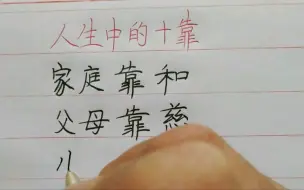 人生中的十靠
家庭靠和
父母靠慈